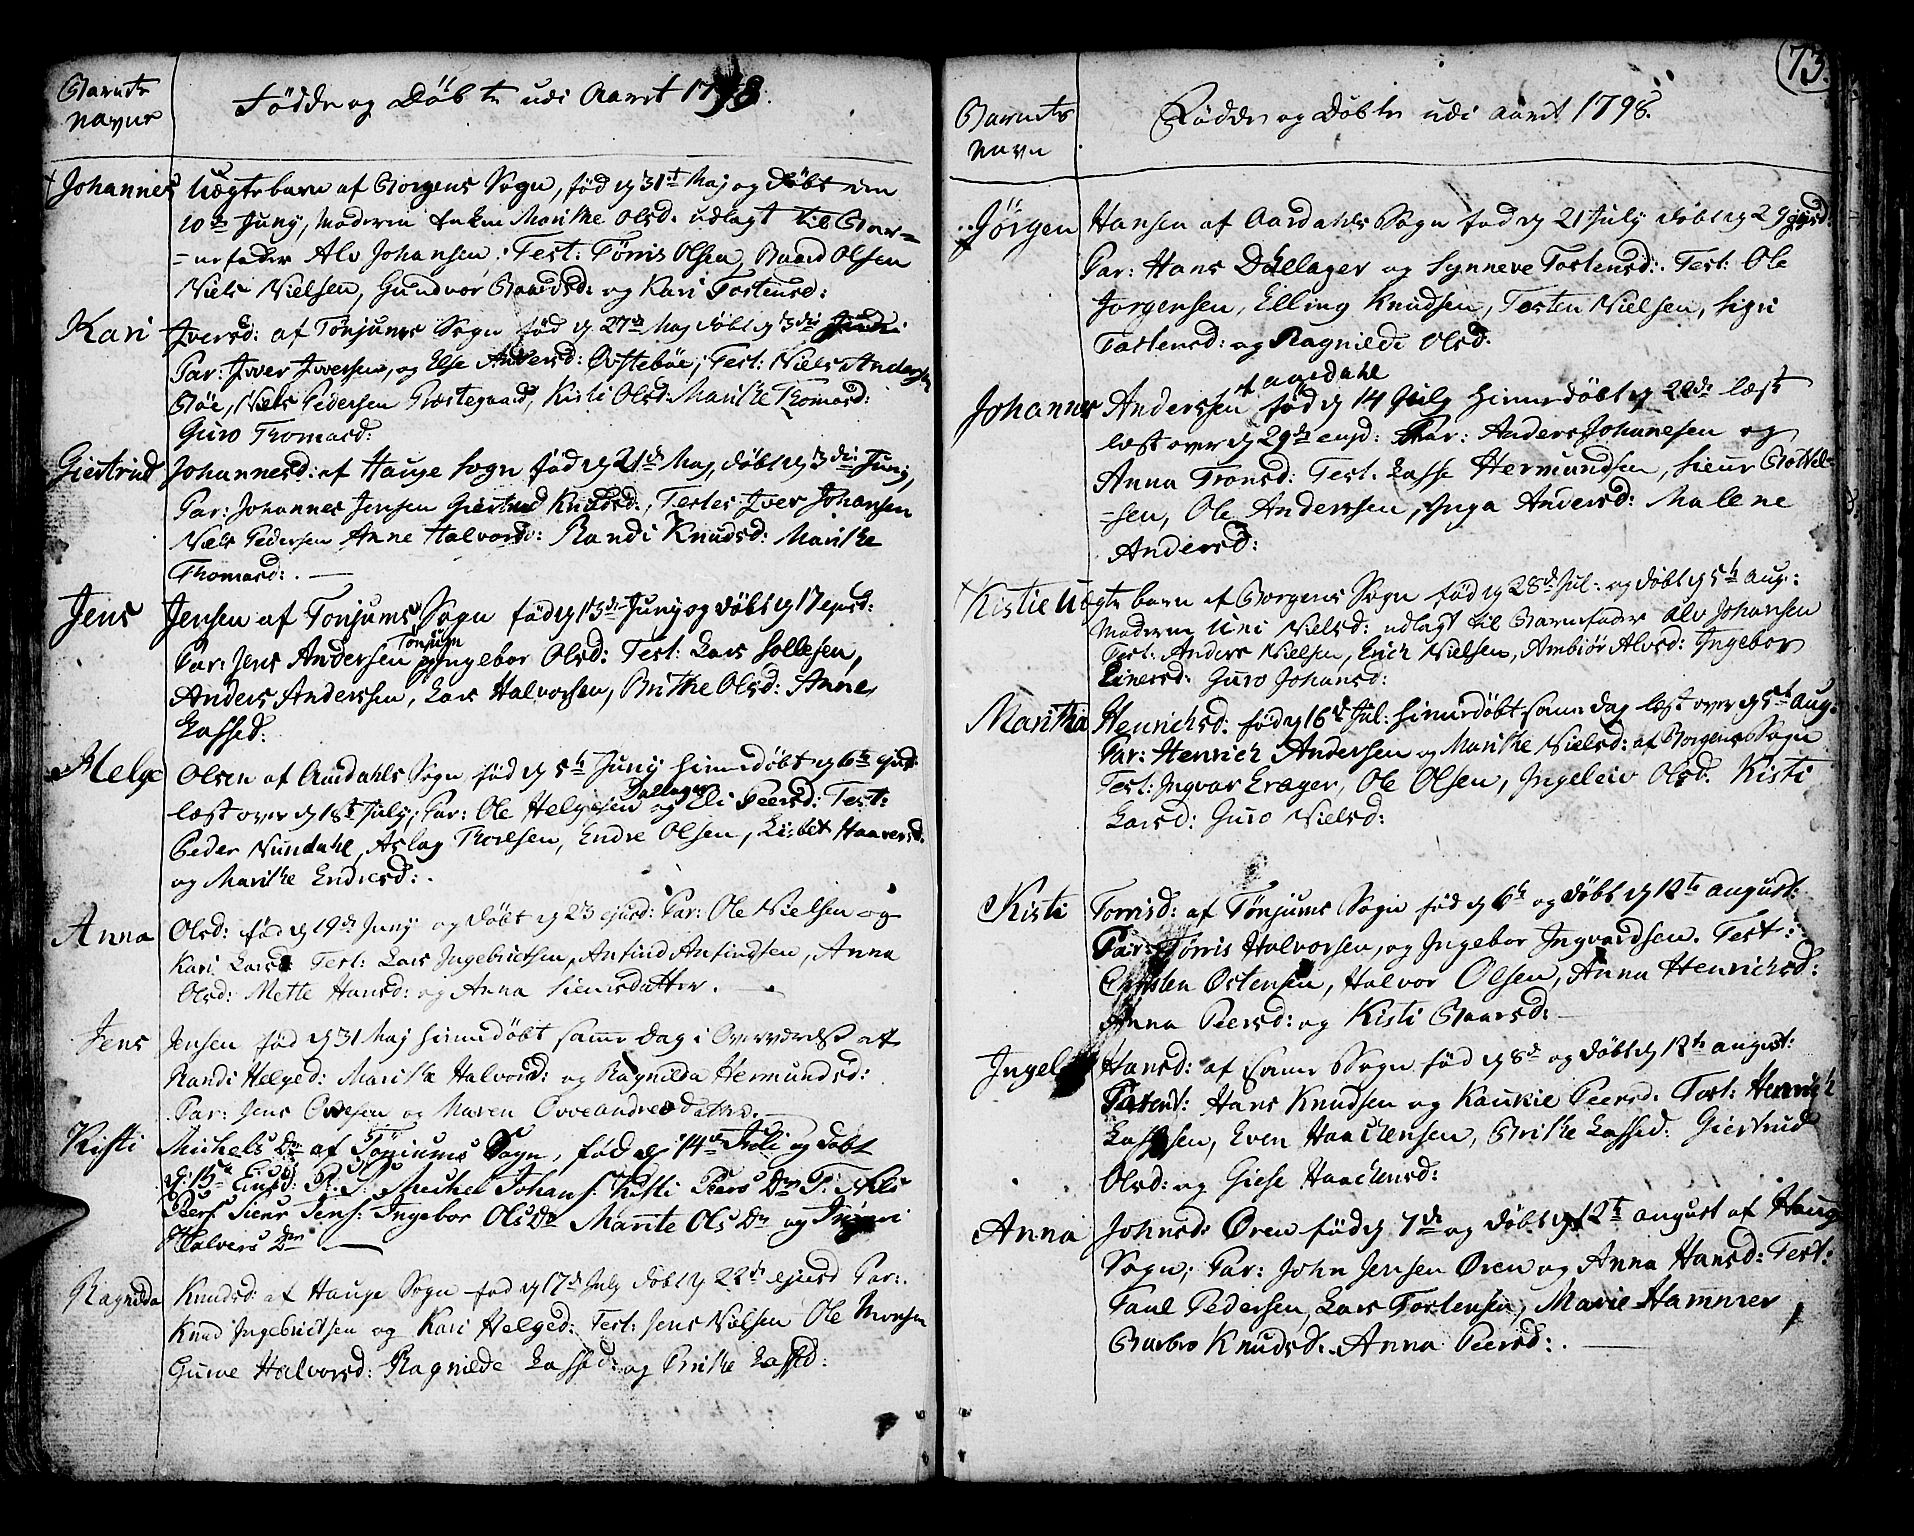 Barnets
navne
Födde og Döbte udi Aaret 1798.
Johannes Uægte barn af Borgens Sogn, föd d 31t Maj og döbt den
10de Juny, Moderen Enken Marithe Olsd: udlagt til Bar=
=nefader Alv Johansen: Test: Törris Olsen, Baard Olsen
Niels Nielsen, Gundvor Baardsd: og Kari Tostensd:
Kari Iversd: af Tönjums Sogn föd d. 27de Maj döbt d 3die Junii
Par: Iver Iversen, og Else Andersd: Ovstebøe, Test: Niels Andersen
Bøe, Niels Pedersen Præstegaard, Kisti Olsd: Marithe Thomasd:
Guro Thomasd:
Giertrud Johannesd: af Hauge Sogn föd d 21de Maj, döbt d 3die Juny,
Par: Johannes Jensen Giertrud Knudsd:, Testes Iver Johansen
Niels Pedersen Anne Halvorsd: Randi Knudsd: Marithe
Thomasd: . —
Jens Jensen af Tonjums Sogn föd d 13de Juny og döbt d 17 ejusd:
Par: Jens Andersen Tonjum Ingebor Olsd: Test: Lars Sollesen,
Anders Anderssen, Lars Halvorsen, Brithe Olsd: Anne
Lassed:
Helge Olsen af Aardahls Sogn, föd d 5t Juny hiemedöbt d 6te ejusd:
læst over d 18t July; Par: Ole Helgesen Dallager og Eli Peersd: Test:
Peder Nundahl, Aslag Thorlsen, Endre Olsen, Lisbet Haaversd.
og Marithe Endresd: .
Anna Olsd: föd d 19de Juny og döbt d 23 ejusd: Par: Ole Nielsen og
Kari Larsd Test: Lars Ingebrictsen, Anfind Anfindsen, Anna
Olsd: Mette Hansd: og Anna Siursdatter. —
Jens Jensen föd d 31 Maj hiemedöbt samme dag i Overværelse af
Randi Helged: Marithe Halvord: og Ragnilda Hermundsd:
Par: Jens Ovesen og Maren Oveandresdatter. —
Kisti Michels Dr af Tönjums Sogn, föd d 14de Juli og döbt
d: 15de Ejusd: P. Michel Johans: Kisti Peers Dr T: Nils
Peers: Siur Jens: Ingebor Ols Dr Marite Ols Dr og
Halvers Dr —
Ragnilda Knudsd: af Hauge Sogn föd d 17de July döbt d 22de ejusd Par:
Knud Ingebrictsen og Kari Helged: Test: Jens Nielsen Ole Monsen
Guroe Halvorsd: Ragnilde Lassed: og Brithe Lassed:
73.
Barnets
navn
Födde og Döbte udi Aaret 1798.
Jörgen Hansen af Aardahls Sogn föd d 21 July döbt d 29 ejusd:
Par: Hans Döllager og Synneve Tostensd: Test: Ole
Jorgensen, Elling Knudsen, Tosten Nielsen, Sigri
Tostensd: og Ragnilde Olsd.
af Aardahl
Johannes Anderssen föd d 14 July hiemedöbt d 22de læst
læst over d 29de ejusd: Par: Anders Johanesen og
Anna Tronsd: Test: Lasse Hermundsen, Siur Bottel=
=sen, Ole Anderssen, Ynga Andersd: Malene
Andersd:
Kistie Uægte barn af Borgens Sogn föd d 28de Jul: og döbt d 5t Aug:
Moderen Uni Nielsd: udlagt til Barnefader Alv Johansen
Test: Anders Nielsen, Erich Nielsen, Ambiör Alvsd: Ingebor
Einersd: Guro Johansd:
Maritha Henrichsd: föd d 16de Jul: hiemedöbt samme dag læst over d 5t Aug:
Par: Henrich Andersen og Marithe Nielsd: af Borgens Sogn
Test: Ingvar Eræger, Ole Olsen, Ingeleiv Olsd. Kisti
Larsd: Guro Nielsd:
Kisti Torrisd: af Tönjums Sogn föd d 6t og döbt d 12te August:
Par: Törris Halvorsen, og Ingebor Ingvardsen. Test:
Østensen, Halvor Olsen, Anna Henrichsd:
Anna Peersd: og Kisti Baarsd: —
Ingel Hansd: af samme Sogn föd d 8de og döbt d 12te August:
Parent: Hans Knudsen og Kaurie Peersd. Test: Henrich
Lassesen, Even Haachensen, Brithe Lassed: Giertrud
Olsd: og Giese Haachensd:
Anna Johnsd: Øren föd d 7de og döbt d 12t august af Hauge
Sogn; Par: John Jensen Øren og Anna Hansd: Test:
Paul Pedersen, Lars Tostensen, Marie Hammer
Barbro Knudsd. Anna Peersd: . —